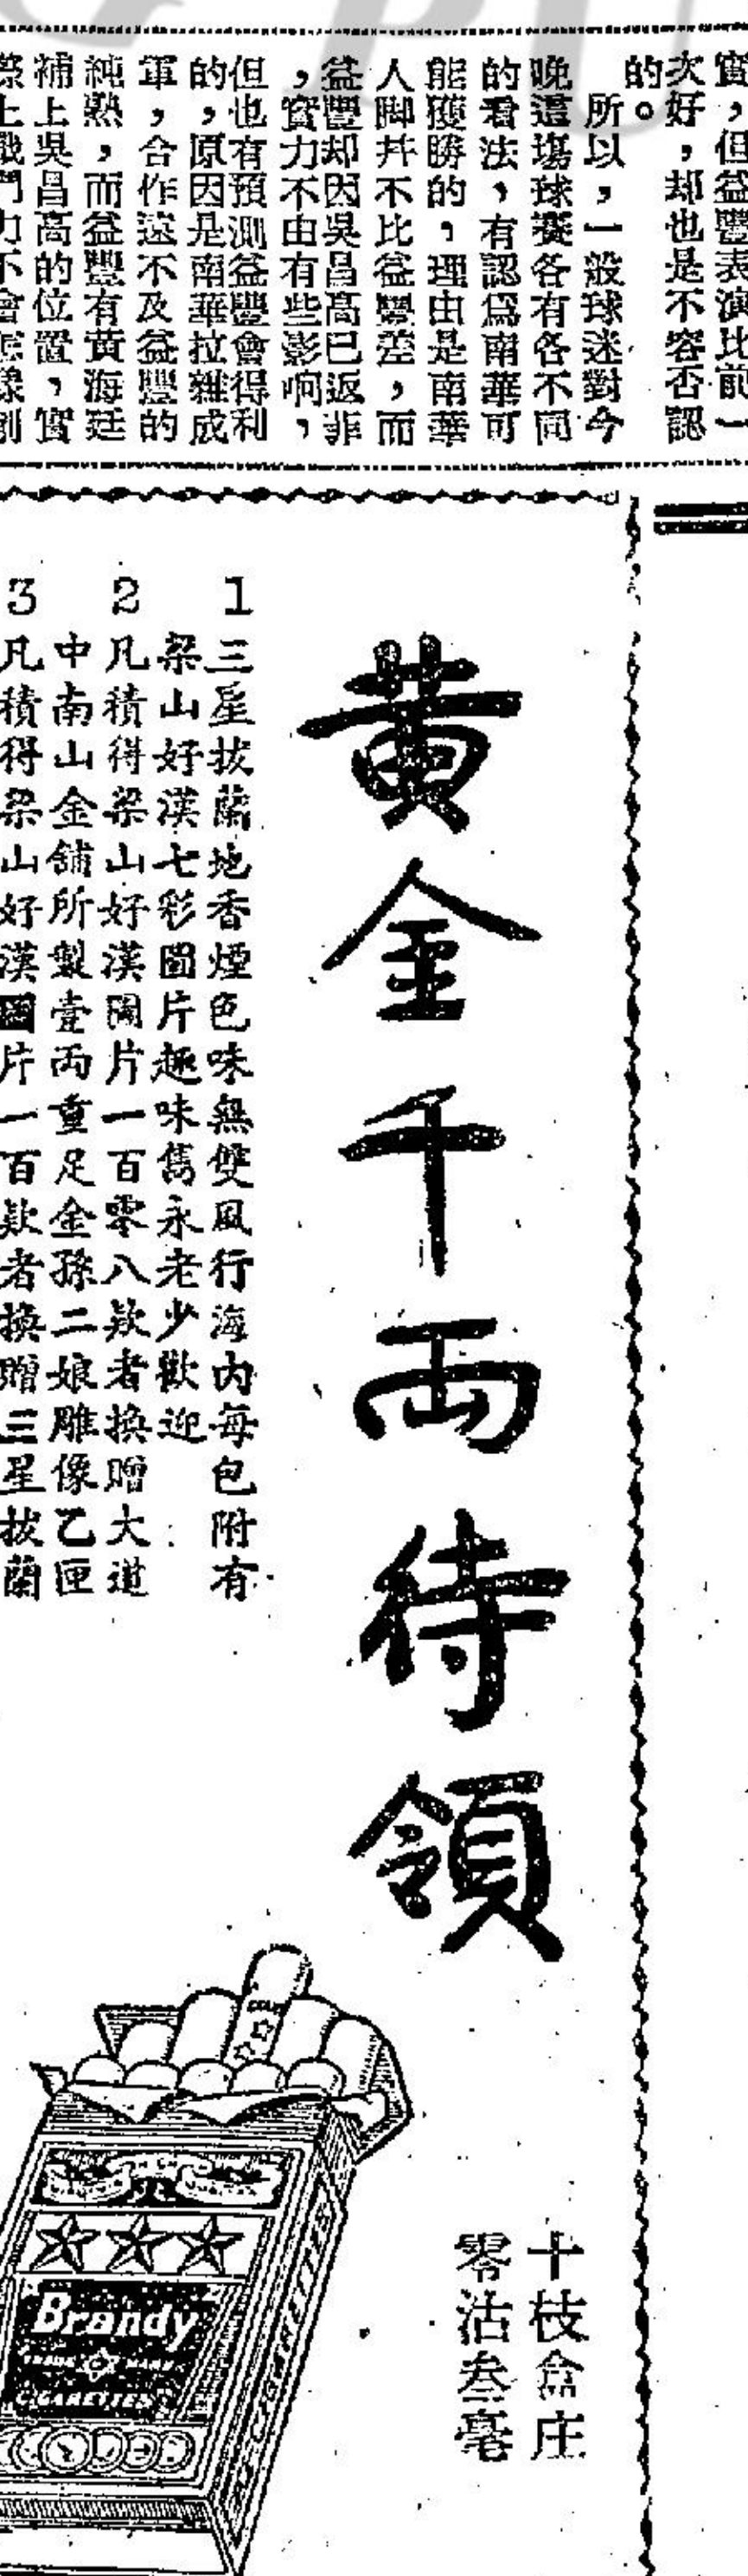 實，但益豐表演比前一
次好，却也是不容否認
的。
所以，一般球迷對今
晚這場球賽各有各不同
的看法，有認爲南華可
能獲勝的，理由是南華
人脚幷不比益豐差，而
益豐却因吳昌高已返菲
，實力不由有些影响，
但也有預測益豐會得利
的，原因是南華拉雜成
軍，合作遠不及益豐的
純熟，而益豐有黄海廷
補上吳昌高的位置，實
際上戰鬥力不會怎樣削
黄金千両待領
1 三星拔蘭地香煙色味無雙風行海內每包附有
梁山好漢七彩圖片趣味雋永老少歡迎
2 凡積得梁山好漢圖片一百零八欵者換贈大道
中南山金舖所製壹両重足金孫二娘雕像乙匣
3 凡積得梁山好漢圖片一百欵者換贈三星拔蘭
十枝盒庄
零沽叁毫
Brandy
TRADE MARK
CIGARETTES